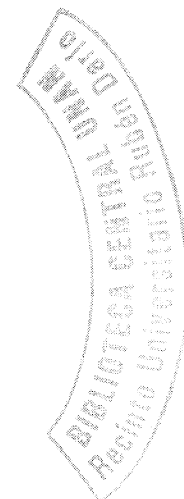 BIBLIOTECA CENTRAL UNAN
Recinto Universitario Rubén Darío